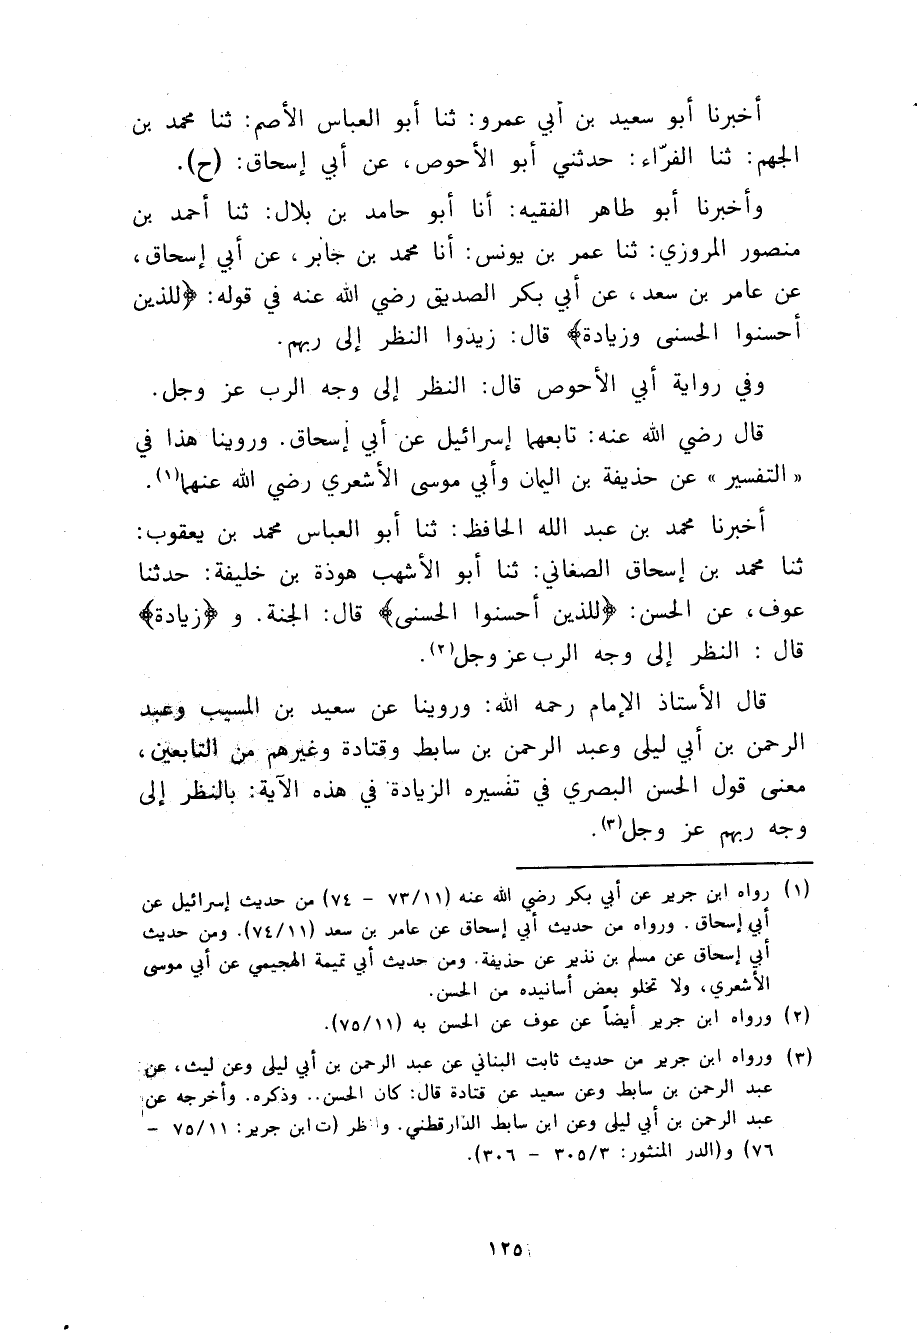 أخبرنا أبو سعيد بن أبي عمرو: ثنا أبو العباس الأصم: ثنا محمد بن
الجهم: ثنا الفرّاء: حدثني أبو الأحوص، عن أبي إسحاق: (ح).
وأخبرنا أبو طاهر الفقيه: أنا أبو حامد بن بلال: ثنا أحمد بن
منصور المروزي: ثنا عمر بن يونس: أنا محمد بن جابر، عن أبي إسحاق،
عن عامر بن سعد، عن أبي بكر الصديق رضي الله عنه في قوله: ﴿للذين
أحسنوا الحسنى وزيادة﴾ قال: زيدوا النظر إلى ربهم.
وفي رواية أبي الأحوص قال: النظر إلى وجه الرب عز وجل.
قال رضي الله عنه: تابعهما إسرائيل عن أبي إسحاق. وروينا هذا في
« التفسير » عن حذيفة بن اليمان وأبي موسى الأشعري رضي الله عنهما(١).
أخبرنا محمد بن عبد الله الحافظ: ثنا أبو العباس محمد بن يعقوب:
ثنا محمد بن إسحاق الصغاني: ثنا أبو الأشهب هوذة بن خليفة: حدثنا
عوف، عن الحسن: ﴿للذين أحسنوا الحسنى﴾ قال: الجنة. و ﴿زيادة﴾
قال : النظر إلى وجه الرب عز وجل(٢).
قال الأستاذ الإمام رحمه الله: وروينا عن سعيد بن المسيب وعبد
الرحمن بن أبي ليلى وعبد الرحمن بن سابط وقتادة وغيرهم من التابعين،
معنى قول الحسن البصري في تفسيره الزيادة في هذه الآية: بالنظر إلى
وجه ربهم عز وجل(٣).
(١) رواه ابن جرير عن أبي بكر رضي الله عنه (٧٣/١١ – ٧٤) من حديث إسرائيل عن
أبي إسحاق. ورواه من حديث أبي إسحاق عن عامر بن سعد (٧٤/١١). ومن حديث
أبي إسحاق عن مسلم بن نذير عن حذيفة. ومن حديث أبي تميمة الهجيمي عن أبي موسى
الأشعري، ولا تخلو بعض أسانيده من الحسن.
(٢) ورواه ابن جرير أيضاً عن عوف عن الحسن به (٧٥/١١).
(٣) ورواه ابن جرير من حديث ثابت البناني عن عبد الرحمن بن أبي ليلى وعن ليث، عن
عبد الرحمن بن سابط وعن سعيد عن قتادة قال: كان الحسن.. وذكره. وأخرجه عن
عبد الرحمن بن أبي ليلى وعن ابن سابط الدارقطني. وانظر (ت ابن جرير: ٧٥/١١ –
٧٦) و(الدر المنثور: ٣٠٥/٣ – ٣٠٦).
١٢٥